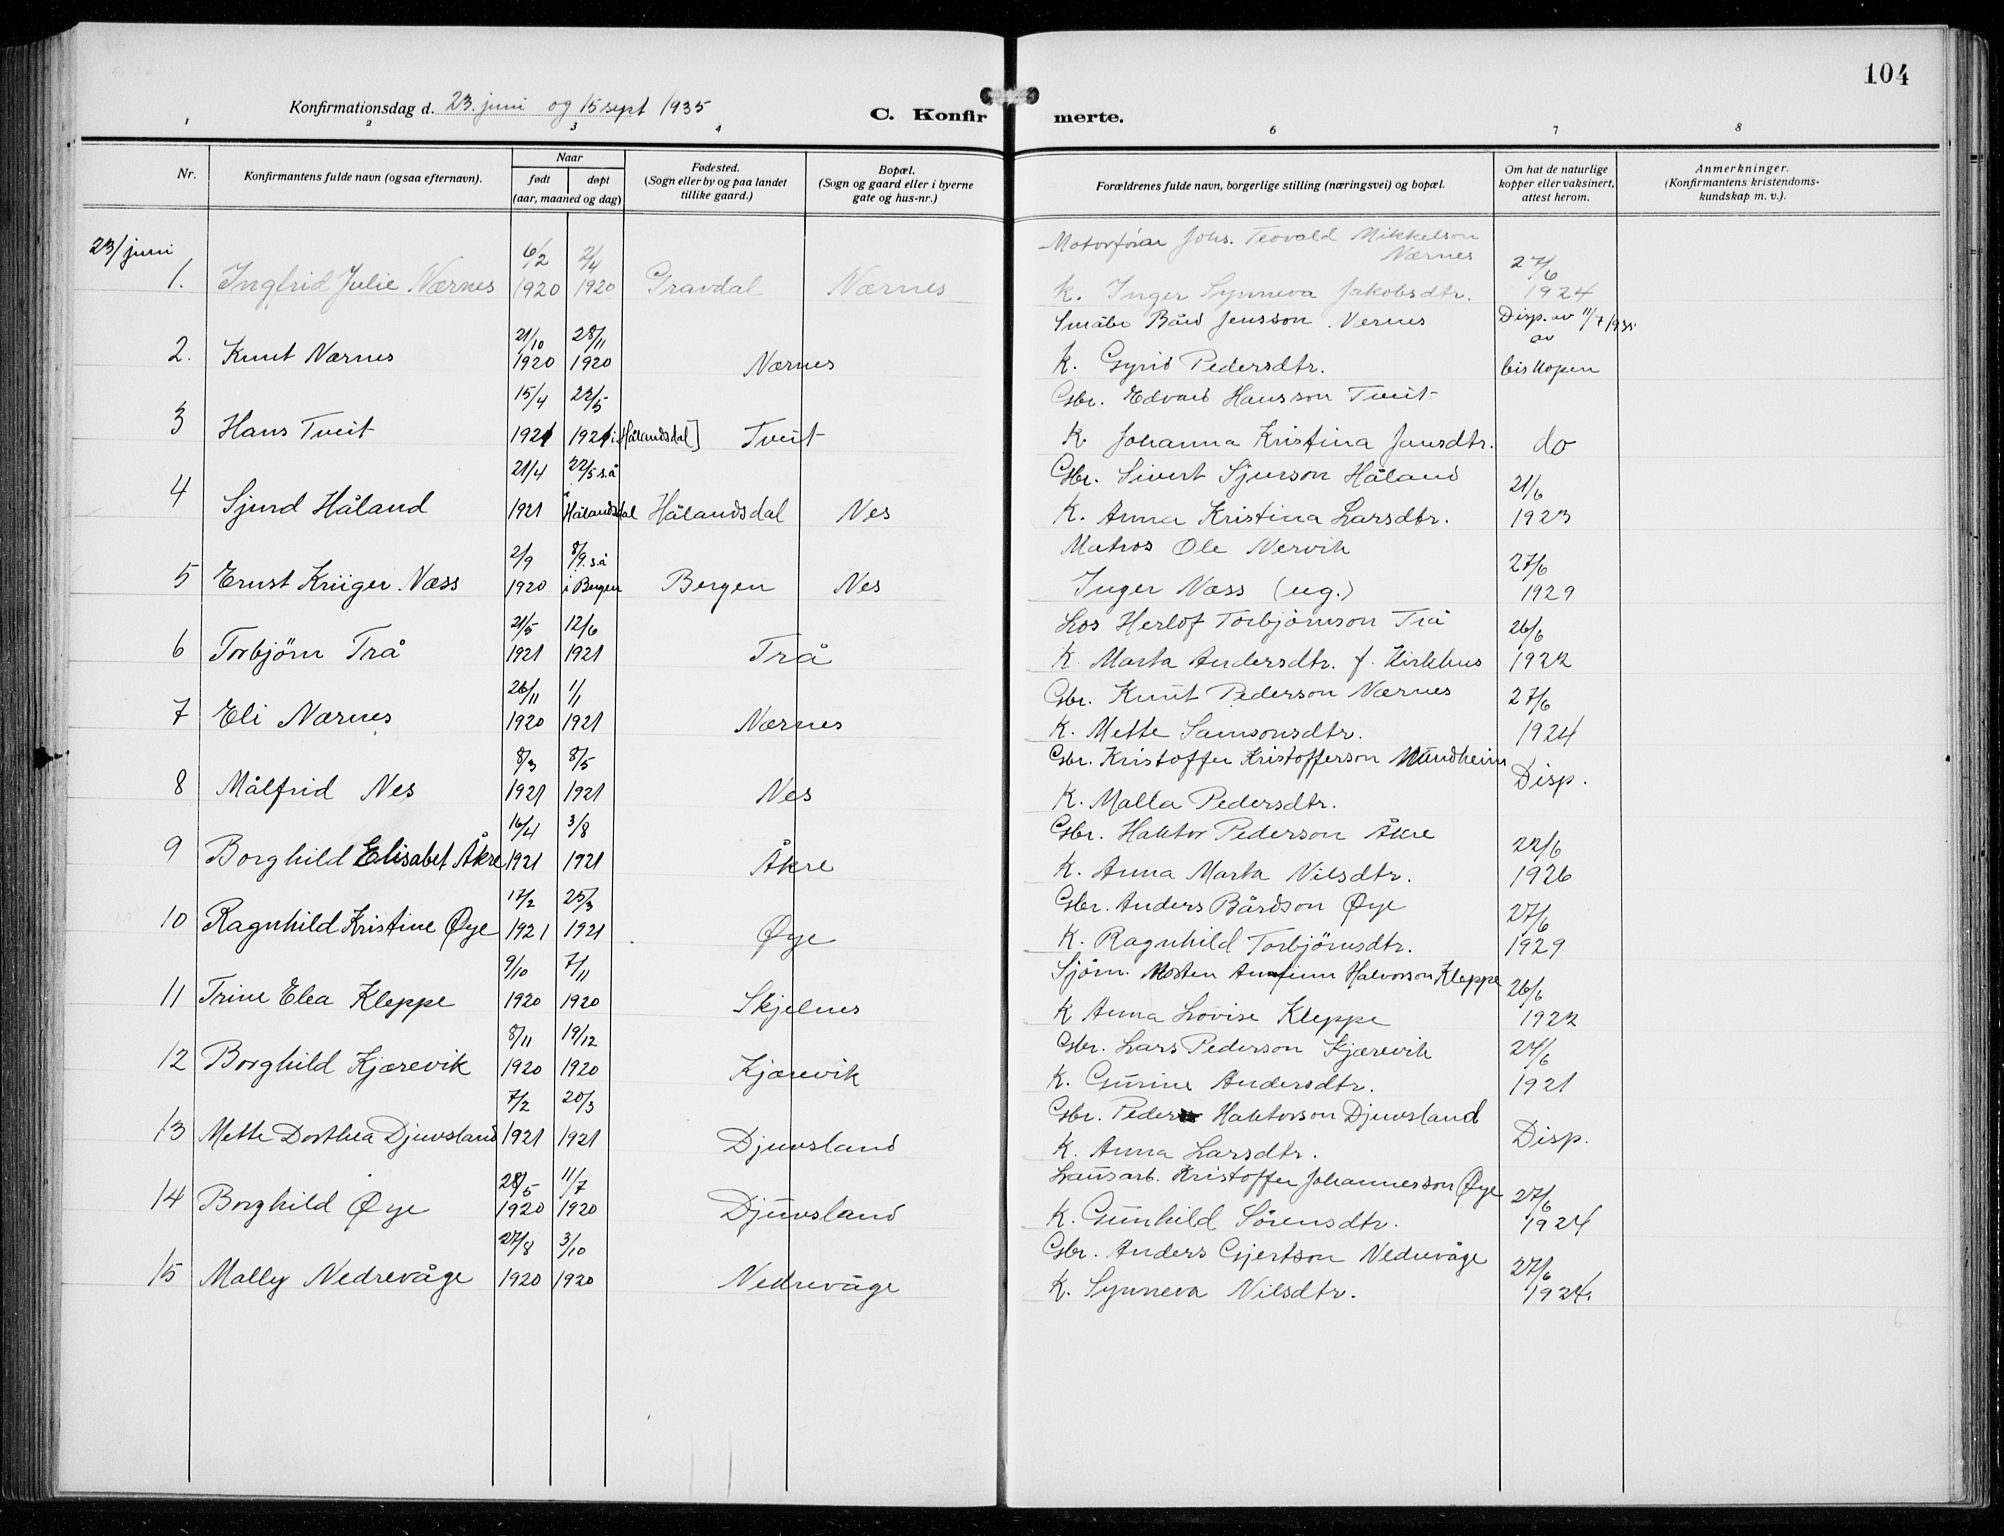 104
Konfirmationsdag d. 23. juni og 15 sept 1935
C. Konfirmerte.
1 2 3 4 6 7 8
Nr.
Konfirmantens fulde navn (ogsaa efternavn).
Naar
født døpt
(aar, maaned og dag)
Fødested.
(Sogn eller by og paa landet
tillike gaard.)
Bopæl.
(Sogn og gaard eller i byerne
gate og hus-nr.)
Forældrenes fulde navn, borgerlige stilling (næringsvei) og bopæl.
Om hat de naturlige
kopper eller vaksinert,
attest herom.
Anmerkninger.
(Konfirmantens kristendoms-
kundskap m. v.).
23/juni
6/2 2/4 Motorfører Johs. Teovald Mikkelson
Nærnes 27/6
1. Ingfrid Julie Nærnes 1920 1920 Gravdal Nærnes K. Inger Synneva Jakobsdtr. 1924
21/10 28/11 Småbr Bård Jensson Nernes Disp. av 11/7 1935
av
2. Knut Nærnes 1920 1920 Nærnes K. Gyrid Pedersdtr. biskopen
15/4 22/5 Gbr. Edvard Hansson Tveit
3 Hans Tveit 1921 1921 i Hålandsdal] Tveit K. Johanna Kristina Jansdtr. do
21/4 22/5 s.å Gbr. Sivert Sjurson Håland 21/6
4 Sjurd Håland 1921 Hålandsdal Hålandsdal Nes K. Anna Kristina Larsdtr. 1923
2/9 8/9 s.å Matros Ole Nervik 27/6
5 Ernst Krüger Næss 1920 i Bergen Bergen Nes Inger Næss (ug.) 1929
21/5 12/6 Los Herlof Torbjørnson Trå 26/6
6 Torbjörn Trå 1921 1921 Trå K. Marta Andersdtr. f. Kirkhus 1922
26/11 1/1 Gbr. Knut Pederson Nærnes 27/6
7 Eli Nærnes 1920 1921 Nærnes K. Mette Samsonsdtr. 1924
8/3 8/5 Gbr. Kristoffer Kristofferson Mundheim
8 Målfrid Nes 1921 1921 Nes K. Malla Pedersdtr. Disp.
16/4 3/8 Gbr. Haktor Pederson Åkre 22/6
9 Borghild Elisabet Åkre 1921 1921 Åkre K. Anna Marta Nilsdtr. 1926
17/2 25/3 Gbr. Anders Bårdson Øye 27/6
10 Ragnhild Kristine Øye 1921 1921 Øye K. Ragnhild Torbjörnsdtr. 1929
9/10 7/11 Sjöm. Morten Halvorson Kleppe 26/6
11 Trine Elea Kleppe 1920 1920 Skjelnes K Anna Lovise Kleppe 1922
8/11 19/12 Gbr. Lars Pederson Kjærevik 24/6
12 Borghild Kjærevik 1920 1920 Kjærevik K. Gurine Andersdtr. 1921
7/2 20/3 Gbr. Peder Haktorson Djuvsland
13 Mette Dorthea Djuvsland 1921 1921 Djuvsland K. Anna Larsdtr. Disp.
28/5 11/7 Lausarb. Kristoffer Johannesson Øye 27/6
14 Borghild Øye 1920 1920 Djuvsland K. Gunhild Sörensdtr. 1924
27/8 3/10 Gbr. Anders Gjertson Nedrevåge 27/6
15 Mally Nedrevåge 1920 1920 Nedrevåge K. Synneva Nilsdtr. 1924.